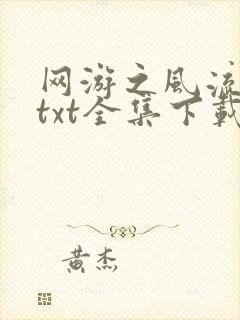 网游之风流
txt全集下载
黄杰